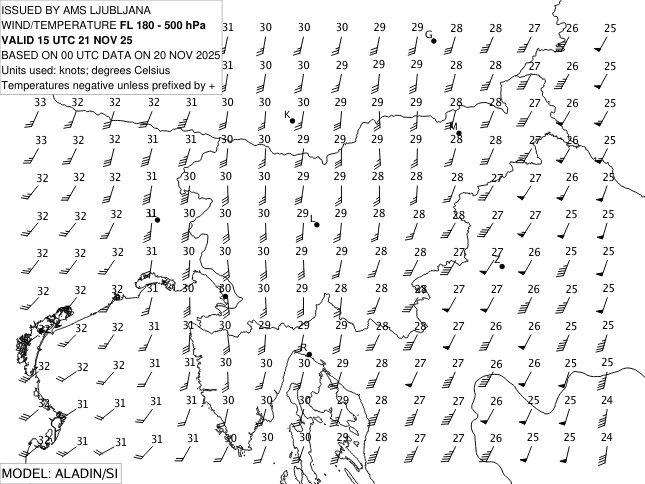 ISSUED BY AMS LJUBLJANA
WIND/TEMPERATURE FL 180 - 500 hPa
VALID 15 UTC 21 NOV 25
BASED ON 00 UTC DATA ON 20 NOV 2025
Units used: knots; degrees Celsius
Temperatures negative unless prefixed by +
31 30 30 30 29 28 28 28 27 26 25
G
30 30 30 29 29 28 28 27 26 25
33 32 32 31 31 30 30 30 29 29 29 28 28 27 26 25
K
M
33 32 32 31 31 30 30 29 29 29 29 28 28 27 26 25
32 32 32 31 30 30 30 29 29 28 28 28 27 27 25 25
32 32 32 31 30 30 30 29 29 28 28 28 27 27 25 25
L
32 32 32 31 30 30 30 29 29 28 28 27 27 26 25 25
Z
32 32 32 31 30 30 30 29 29 28 28 27 27 26 25 25
32 32 32 31 31 30 29 29 29 28 28 27 26 26 25 25
R
32 32 32 31 31 30 30 30 29 28 27 27 26 26 25 25
32 31 31 31 31 30 30 30 29 28 27 27 26 25 25 24
32 31 31 31 31 30 30 30 29 28 27 27 26 25 25 24
MODEL: ALADIN/SI